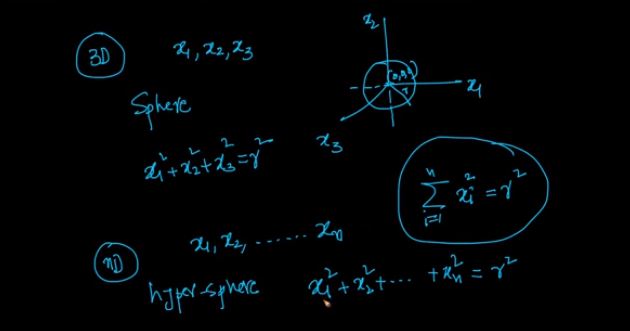 3D x₁, x₂, x₃
Sphere
x₁² + x₂² + x₃² = r²
x₂
(0,0,0)
r
x₁
x₃
n
∑ xᵢ² = r²
i=1
nD x₁, x₂, ....... xₙ
hyper-sphere x₁² + x₂² + ... + xₙ² = r²